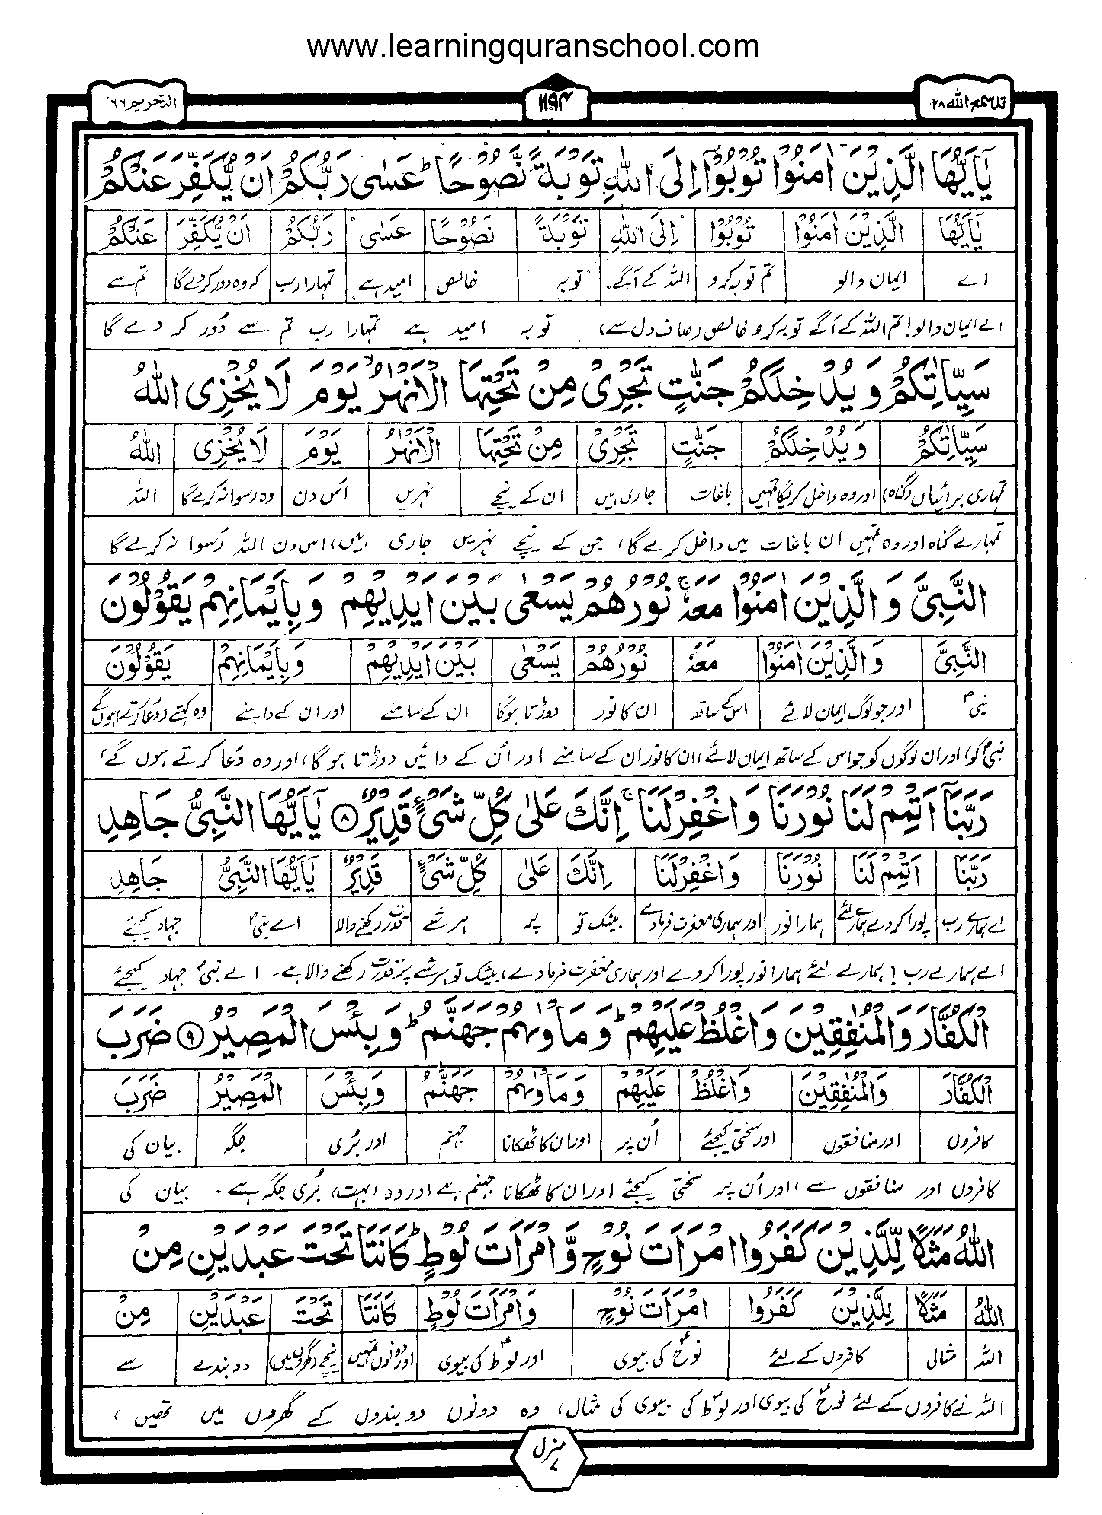 www.learningquranschool.com
التحریم ۶۶
۱۱۹۴
قد سمع الله ۲۸
يٰۤاَيُّهَا الَّذِيْنَ اٰمَنُوْا تُوْبُوْۤا اِلَى اللّٰهِ تَوْبَةً نَّصُوْحًا ؕ عَسٰى رَبُّكُمْ اَنْ يُّكَفِّرَ عَنْكُمْ
يٰۤاَيُّهَا الَّذِيْنَ اٰمَنُوْا تُوْبُوْۤا اِلَى اللّٰهِ تَوْبَةً نَّصُوْحًا عَسٰى رَبُّكُمْ اَنْ يُّكَفِّرَ عَنْكُمْ
اے ایمان والو تم توبہ کرو اللہ کے آگے توبہ خالص امید ہے تمہارا رب کہ وہ دور کردے گا تم سے
اے ایمان والو! تم اللہ کے آگے توبہ کرو خالص (صاف دل سے) توبہ امید ہے تمہارا رب تم سے دُور کر دے گا
سَيِّاٰتِكُمْ وَيُدْخِلَكُمْ جَنّٰتٍ تَجْرِىْ مِنْ تَحْتِهَا الْاَنْهٰرُ ۙ يَوْمَ لَا يُخْزِى اللّٰهُ
سَيِّاٰتِكُمْ وَيُدْخِلَكُمْ جَنّٰتٍ تَجْرِىْ مِنْ تَحْتِهَا الْاَنْهٰرُ يَوْمَ لَا يُخْزِى اللّٰهُ
تمہاری برائیاں (گناہ) اور وہ داخل کریگا تمہیں باغات جاری ہیں ان کے نیچے نہریں اس دن وہ رسوا نہ کرے گا اللہ
تمہارے گناہ اور وہ تمہیں ان باغات میں داخل کرے گا، جن کے نیچے نہریں جاری ہیں، اس دن اللہ رُسوا نہ کرے گا
النَّبِىَّ وَالَّذِيْنَ اٰمَنُوْا مَعَهٗ ۚ نُوْرُهُمْ يَسْعٰى بَيْنَ اَيْدِيْهِمْ وَبِاَيْمَانِهِمْ يَقُوْلُوْنَ
النَّبِىَّ وَالَّذِيْنَ اٰمَنُوْا مَعَهٗ نُوْرُهُمْ يَسْعٰى بَيْنَ اَيْدِيْهِمْ وَبِاَيْمَانِهِمْ يَقُوْلُوْنَ
نبیؐ اور جو لوگ ایمان لائے اس کے ساتھ ان کا نور دوڑتا ہوگا ان کے سامنے اور ان کے داہنے وہ کہتے (دعا کرتے) ہوں گے
نبیؐ کو اور ان لوگوں کو جو اس کے ساتھ ایمان لائے، ان کا نور ان کے سامنے اور ان کے دائیں دوڑتا ہو گا، اور وہ دُعا کرتے ہوں گے،
رَبَّنَاۤ اَتْمِمْ لَنَا نُوْرَنَا وَاغْفِرْ لَنَا ۚ اِنَّكَ عَلٰى كُلِّ شَىْءٍ قَدِيْرٌ ۝۸ يٰۤاَيُّهَا النَّبِىُّ جَاهِدِ
رَبَّنَاۤ اَتْمِمْ لَنَا نُوْرَنَا وَاغْفِرْ لَنَا اِنَّكَ عَلٰى كُلِّ شَىْءٍ قَدِيْرٌ يٰۤاَيُّهَا النَّبِىُّ جَاهِدِ
اے ہمارے رب پورا کردے ہمارے لئے ہمارا نور اور ہماری مغفرت فرما دے بیشک تو پر ہر شے قدرت رکھنے والا اے نبیؐ جہاد کیجئے
اے ہمارے رب! ہمارے لئے ہمارا نور پورا کردے اور ہماری مغفرت فرما دے، بیشک تو ہر شے پر قدرت رکھنے والا ہے۔ اے نبیؐ جہاد کیجئے
الْكُفَّارَ وَالْمُنٰفِقِيْنَ وَاغْلُظْ عَلَيْهِمْ ؕ وَمَاْوٰىهُمْ جَهَنَّمُ ؕ وَبِئْسَ الْمَصِيْرُ ۝۹ ضَرَبَ
الْكُفَّارَ وَالْمُنٰفِقِيْنَ وَاغْلُظْ عَلَيْهِمْ وَمَاْوٰىهُمْ جَهَنَّمُ وَبِئْسَ الْمَصِيْرُ ضَرَبَ
کافروں اور منافقوں اور سختی کیجئے اُن پر اور ان کا ٹھکانا جہنم اور بُری جگہ بیان کی
کافروں اور منافقوں سے، اور اُن پر سختی کیجئے اور ان کا ٹھکانا جہنم ہے اور وہ (بہت) بُری جگہ ہے۔ بیان کی
اللّٰهُ مَثَلًا لِّلَّذِيْنَ كَفَرُوا امْرَاَتَ نُوْحٍ وَّامْرَاَتَ لُوْطٍ ؕ كَانَتَا تَحْتَ عَبْدَيْنِ مِنْ
اللّٰهُ مَثَلًا لِّلَّذِيْنَ كَفَرُوا امْرَاَتَ نُوْحٍ وَّامْرَاَتَ لُوْطٍ كَانَتَا تَحْتَ عَبْدَيْنِ مِنْ
اللہ مثال کافروں کے لئے نوحؑ کی بیوی اور لوطؑ کی بیوی اور دونوں تھیں نیچے (گھروں میں) دو بندے سے
اللہ نے کافروں کے لئے نوحؑ کی بیوی اور لوطؑ کی بیوی کی مثال، وہ دونوں دو بندوں کے گھروں میں تھیں،
منزل ۷